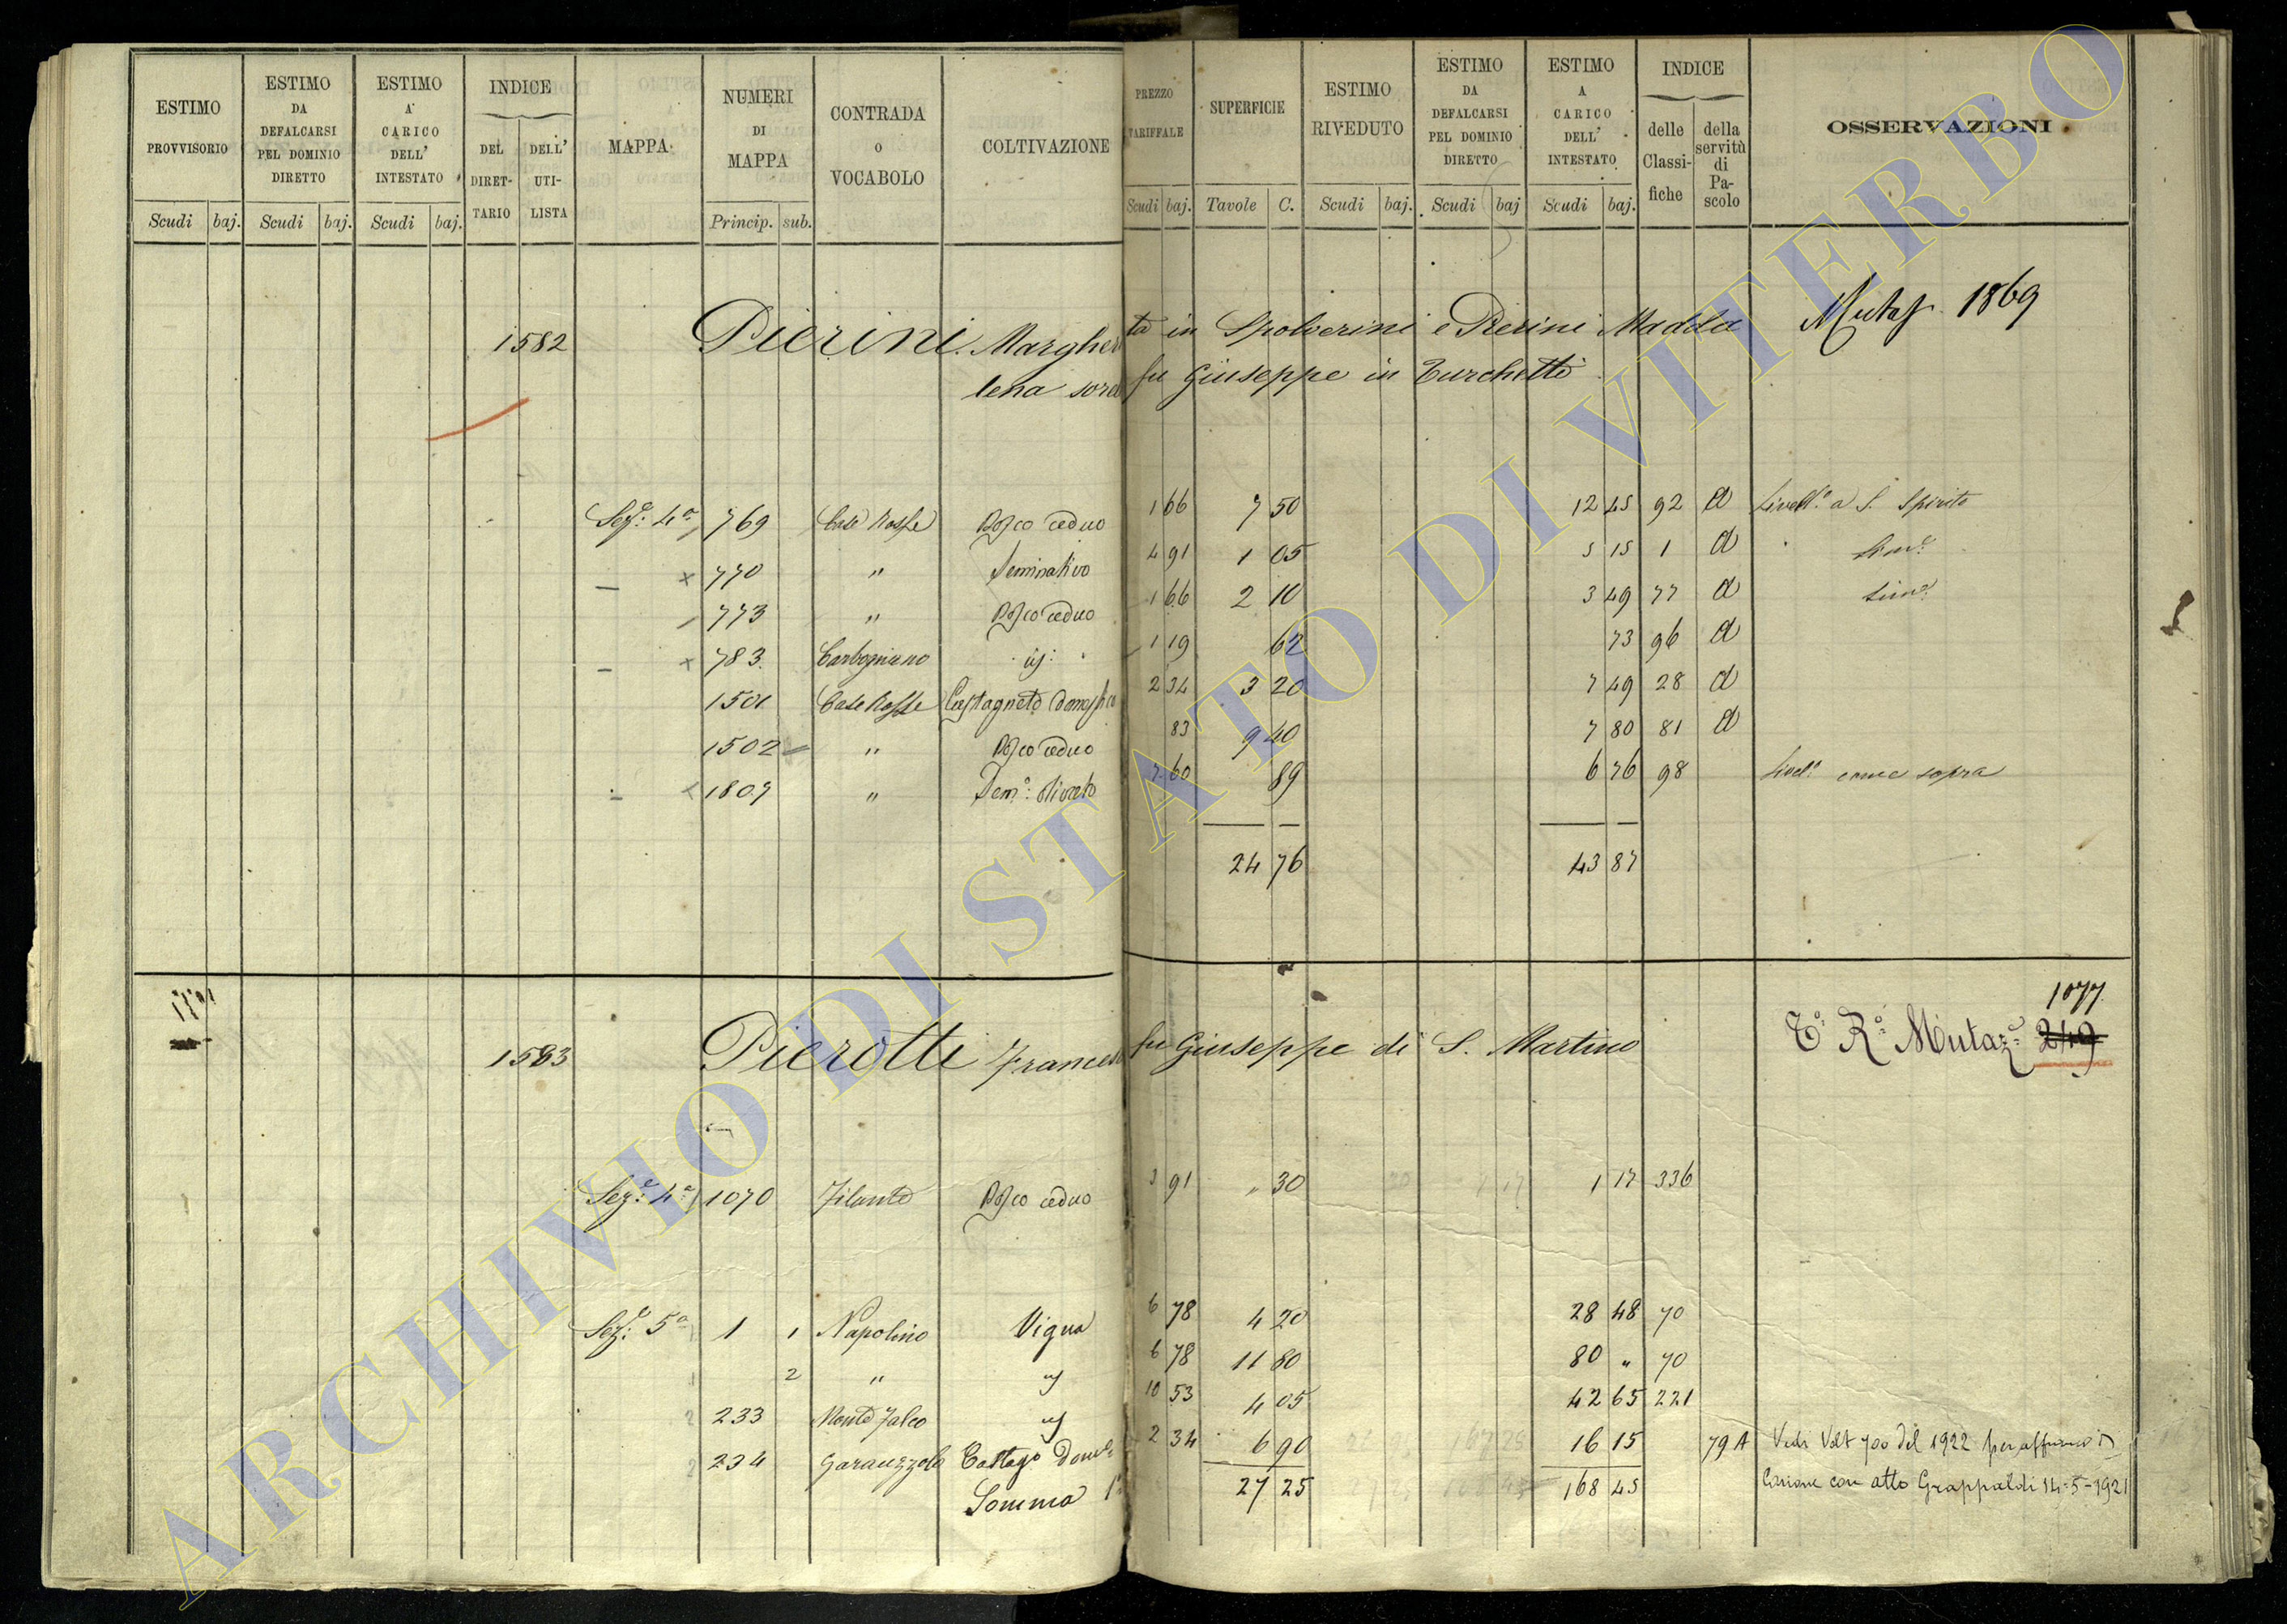 ESTIMO PROVVISORIO Scudi baj.
ESTIMO DA DEFALCARSI PEL DOMINIO DIRETTO Scudi baj.
ESTIMO A' CARICO DELL' INTESTATO Scudi baj.
INDICE DEL DIRET-TARIO DELL' UTI-LISTA
MAPPA
NUMERI DI MAPPA Princip. sub.
CONTRADA O VOCABOLO
COLTIVAZIONE
PREZZO TARIFFALE Scudi baj.
SUPERFICIE Tavole C.
ESTIMO RIVEDUTO Scudi baj.
ESTIMO DA DEFALCARSI PEL DOMINIO DIRETTO Scudi baj
ESTIMO A CARICO DELL' INTESTATO Scudi baj.
INDICE delle Classi-fiche della servitù di Pa-scolo
OSSERVAZIONI
1582 Pierini Margheri ta in Spolverini e Pierini Madda Mutaz. 1869
lena sorel fu Giuseppe in Turchetti
Sez.e 4a 769 Case Rosse Bosco ceduo 1 66 7 50 12 45 92 A Livello a S. Spirito
770 " Seminativo 4 91 1 05 5 15 1 A Sim.e
773 " Bosco ceduo 1 66 2 10 3 49 77 A Sim.e
783 Carbognano id: 1 19 62 73 96 A
1501 Case Rosse Castagneto Domestico 2 34 3 20 7 49 28 A
1502 " Bosco ceduo 83 9 40 7 80 81 A
1807 " Sem.o olivato 7 60 89 6 76 98 Livel.o come sopra
24 76 43 87
1077
1583 Pierotti Francesco fu Giuseppe di S. Martino T.o R.o Mutaz.e 249
Sez.e 4a 1070 Filante Bosco ceduo 3 91 " 30 1 17 336
Sez.e 5a 1 1 Napolino Vigna 6 78 4 20 28 48 70
2 " id 6 78 11 80 80 " 70
233 Monte Falco id 10 53 4 05 42 65 221
234 Garauzzola Castag.o Dom.o 2 34 6 90 16 15 79 A Vedi Volt 700 del 1922 per affranca
Somma 27 25 168 45 zione con atto Grappaldi 14-5-1921
ARCHIVIO DI STATO DI VITERBO